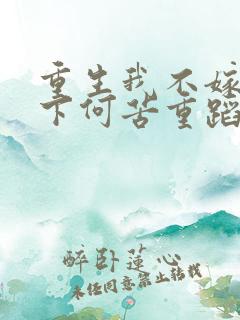 重生我不嫁
下何苦重蹈
醉卧蓮心
未经同意禁止转载